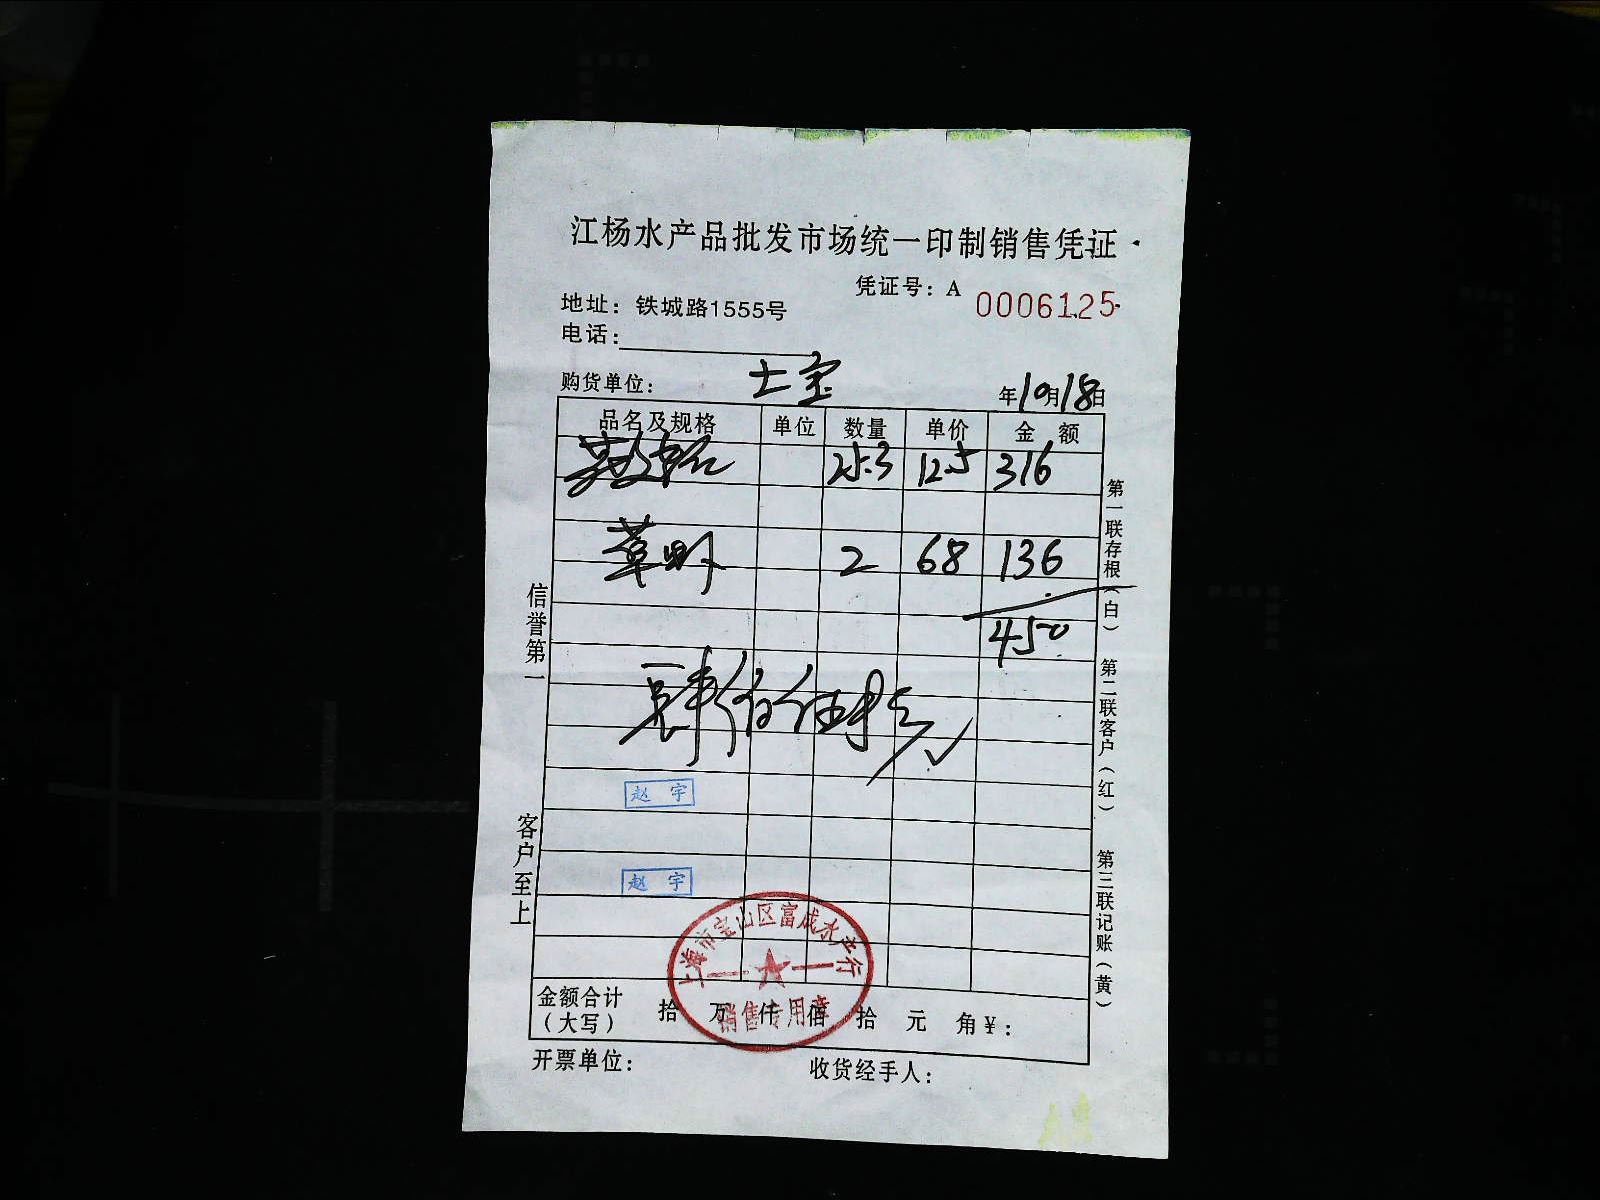 江杨水产品批发市场统一印制销售凭证
凭证号：A 0006125
地址：铁城路1555号
电话：
购货单位： 士宝 年10月18日
品名及规格 单位 数量 单价 金 额
25.3 12.5 316
草虾 2 68 136
450
肆佰伍拾元
赵 宇
赵 宇
上海市宝山区富成水产行
销售专用章
金额合计（大写） 拾 万 仟 佰 拾 元 角 ¥：
开票单位： 收货经手人：
信誉第一
客户至上
第一联存根（白）
第二联客户（红）
第三联记账（黄）